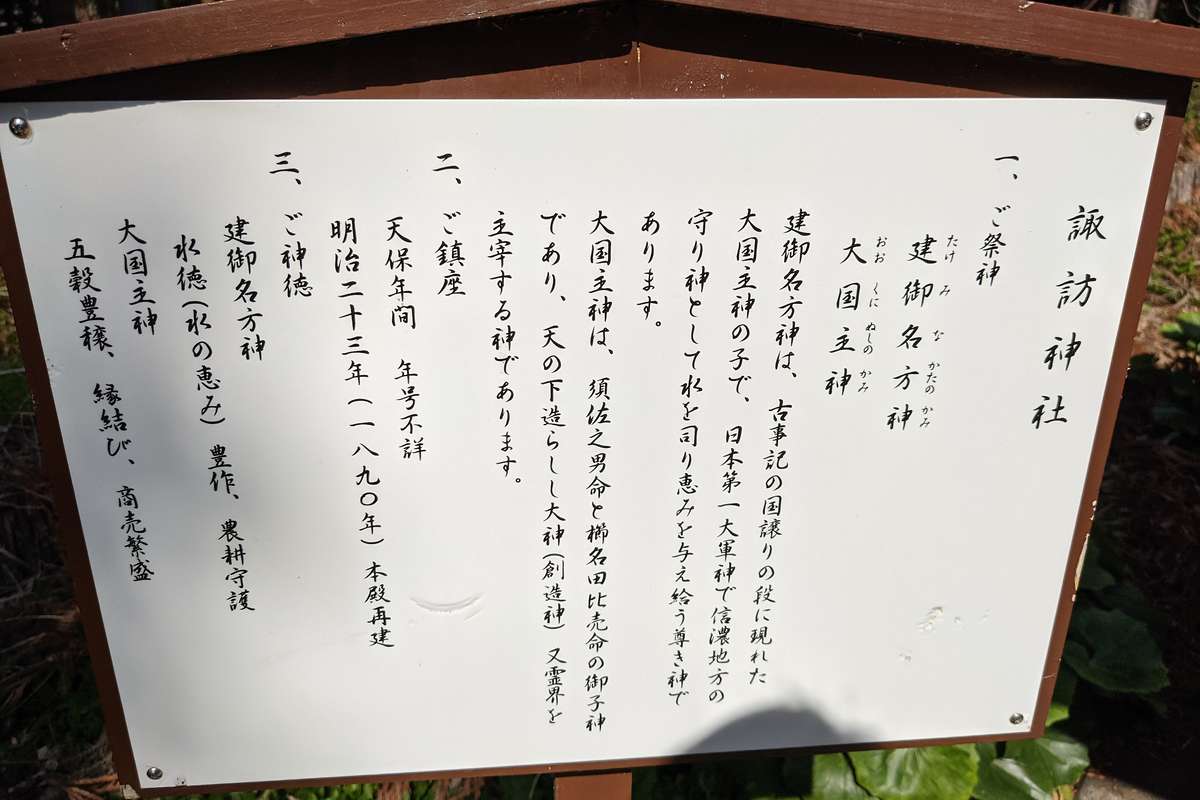 諏訪神社
一、ご祭神
建御名方神
たけみなかたのかみ
大国主神
おおくにぬしのかみ
建御名方神は、古事記の国譲りの段に現れた
大国主神の子で、日本第一大軍神で信濃地方の
守り神として水を司り恵みを与え給う尊き神で
あります。
大国主神は、須佐之男命と櫛名田比売命の御子神
であり、天の下造らしし大神(創造神)又霊界を
主宰する神であります。
二、ご鎮座
天保年間 年号不詳
明治二十三年(一八九〇年)本殿再建
三、ご神徳
建御名方神
水徳(水の恵み)豊作、農耕守護
大国主神
五穀豊穣、縁結び、商売繁盛